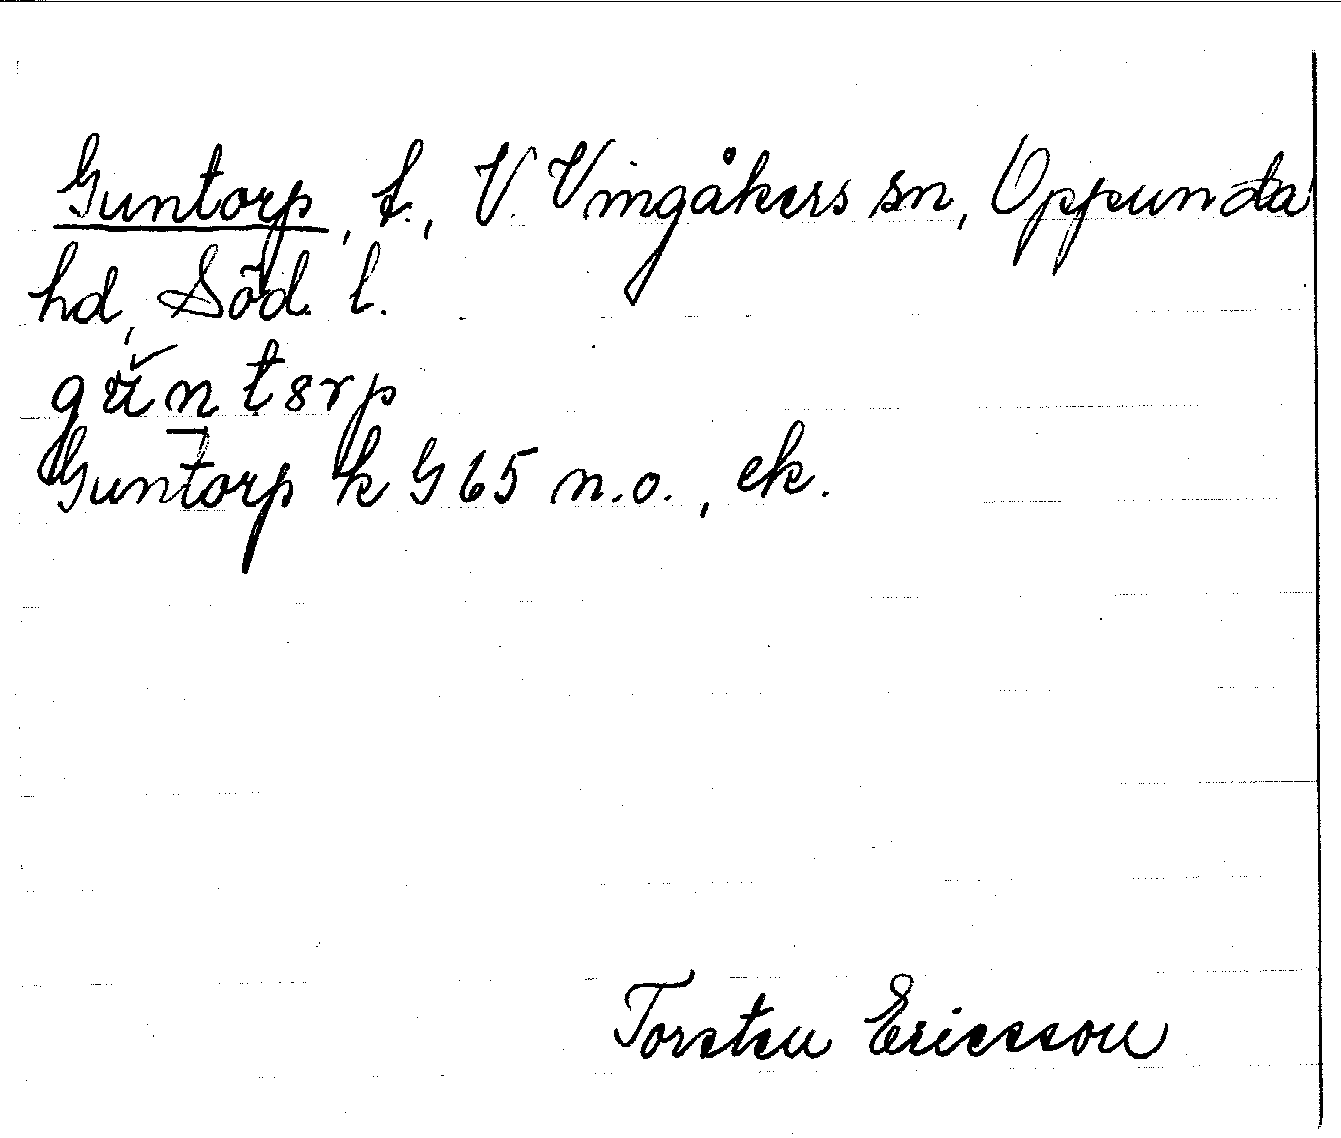 Guntorp, t., V. Vingåkers sn, Oppunda
hd, Söd. l.
Guntorp k G 65 n.o., ek.
Torsten Ericsson